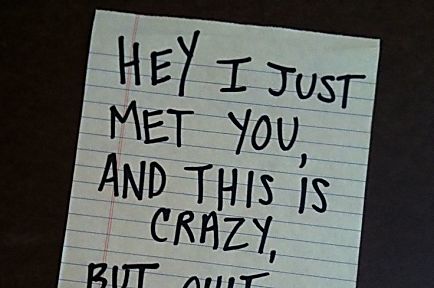 HEY I JUST
MET YOU,
AND THIS IS
CRAZY,
BUT